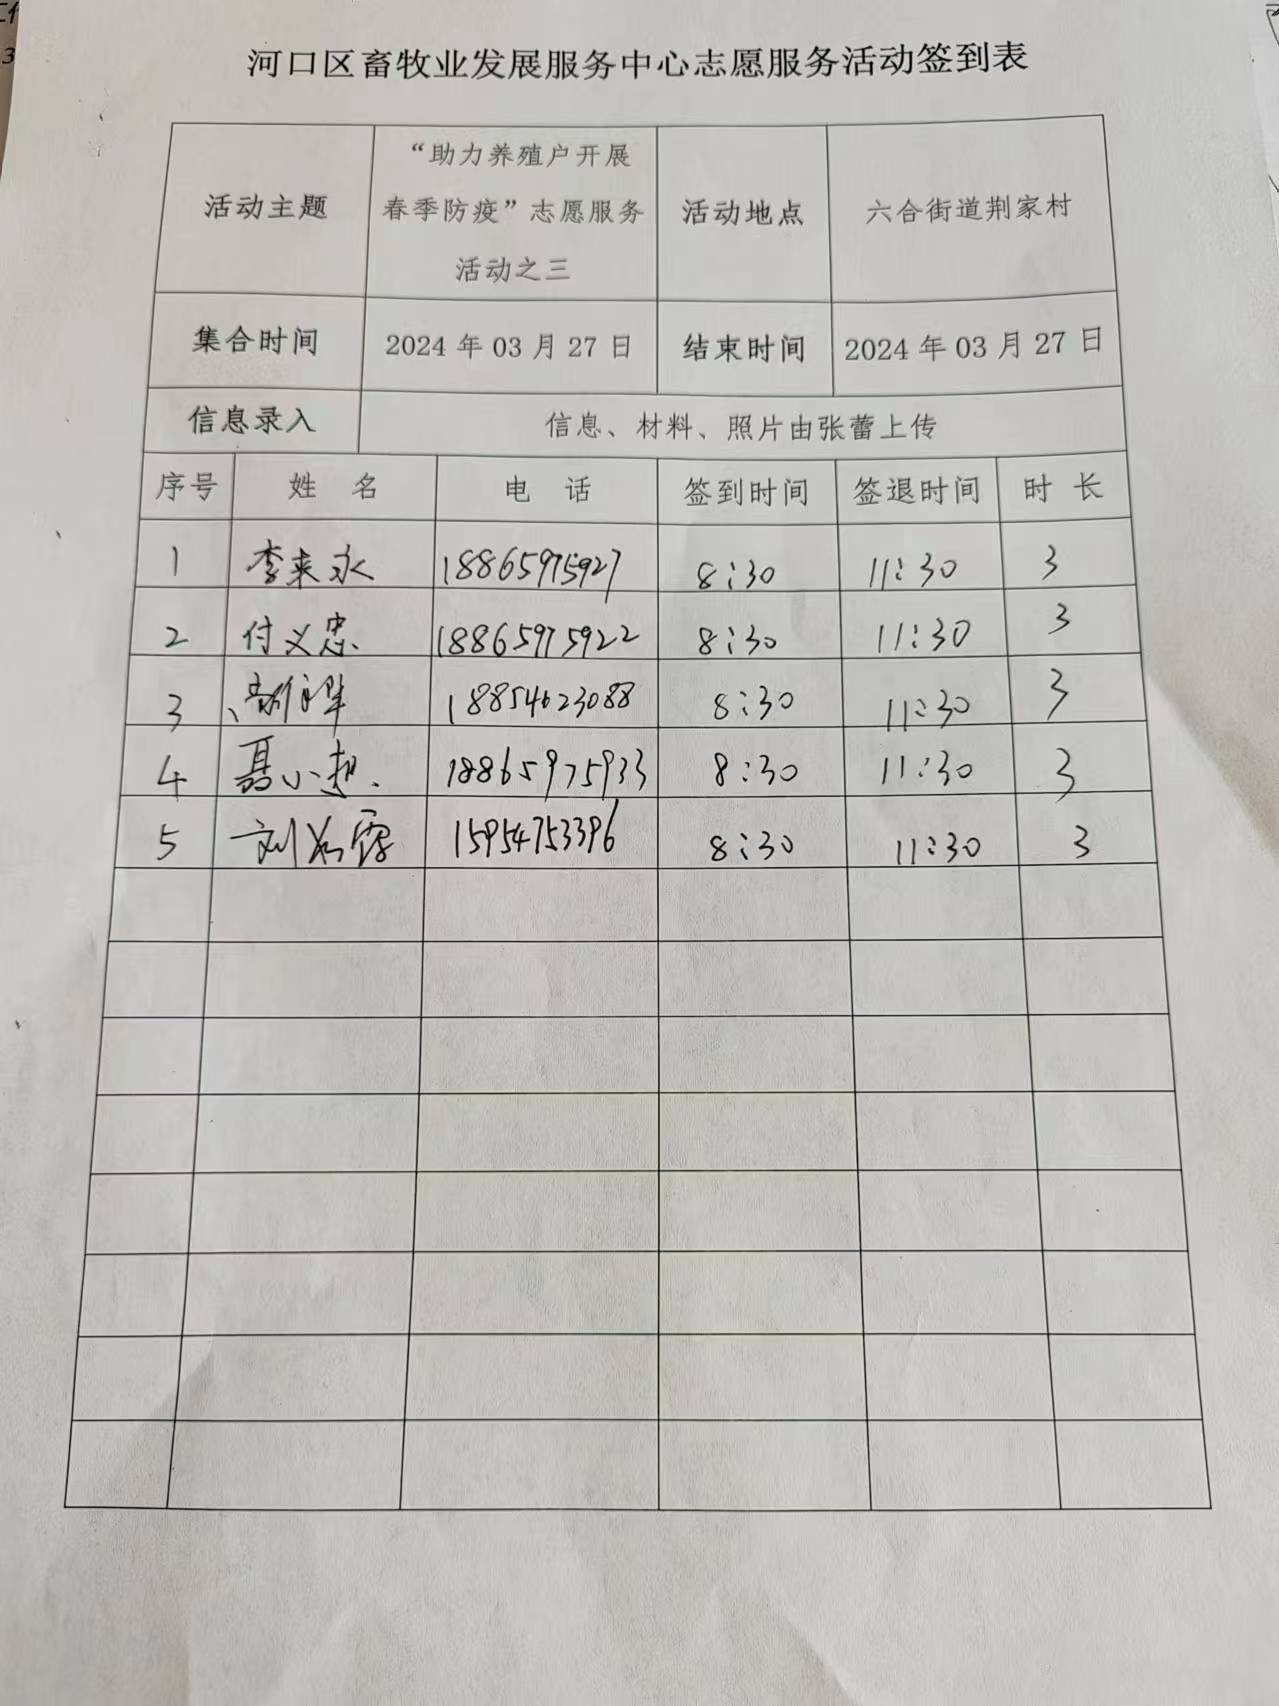 河口区畜牧业发展服务中心志愿服务活动签到表
活动主题 “助力养殖户开展春季防疫”志愿服务活动之三 活动地点 六合街道荆家村
集合时间 2024年03月27日 结束时间 2024年03月27日
信息录入 信息、材料、照片由张蕾上传
序号 姓 名 电 话 签到时间 签退时间 时 长
1 李来永 18865975927 8:30 11:30 3
2 付义忠 18865975922 8:30 11:30 3
3 18854623088 8:30 11:30 3
4 聂小 18865975933 8:30 11:30 3
5 刘 15954753396 8:30 11:30 3